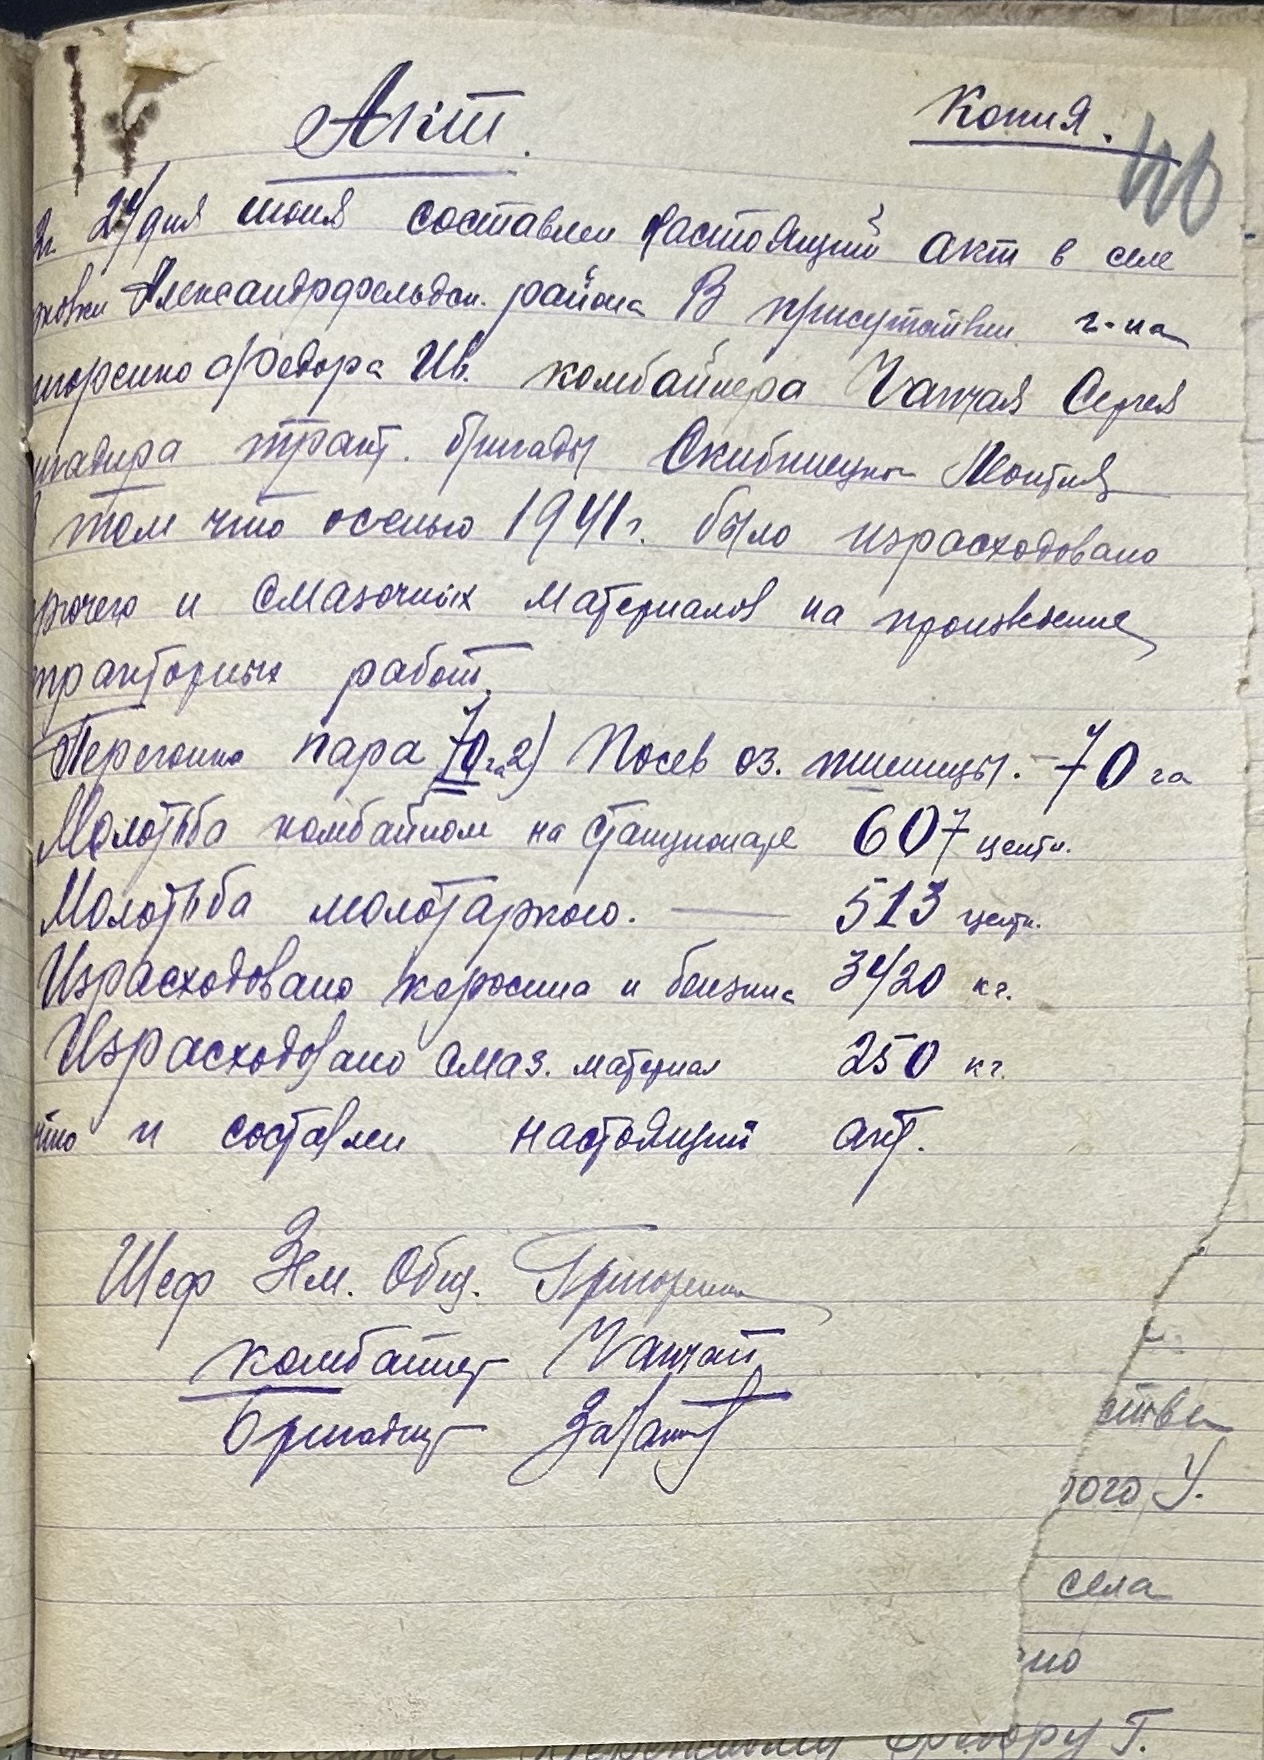 Акт. Копия.
2г. 24/ дня июня составлен настоящий акт в селе
Александрфельдск. района В присутствии г-на
игоренко Федора Ив. комбайнера Чапчая Сергея
игадира тракт. бригады Скибницк
том что осенью 1941 г. было израсходовано
рючего и смазочных материалов на произведение
тракторных работ.
Перегонка пара 70 га 2) Посев оз. пшеницы. - 70 га
Молотьба комбайном на стационаре 607 центн.
Молотьба молотаркою. — 513 центн.
Израсходовано керосина и бензина 3420 кг.
Израсходовано смаз. материал 250 кг.
что и составлен настоящий акт.
Шеф Зем. Общ. Григоренко
комбайнер Чапчай
Бригадир
стве
ого У.
села
но
Федору Г.